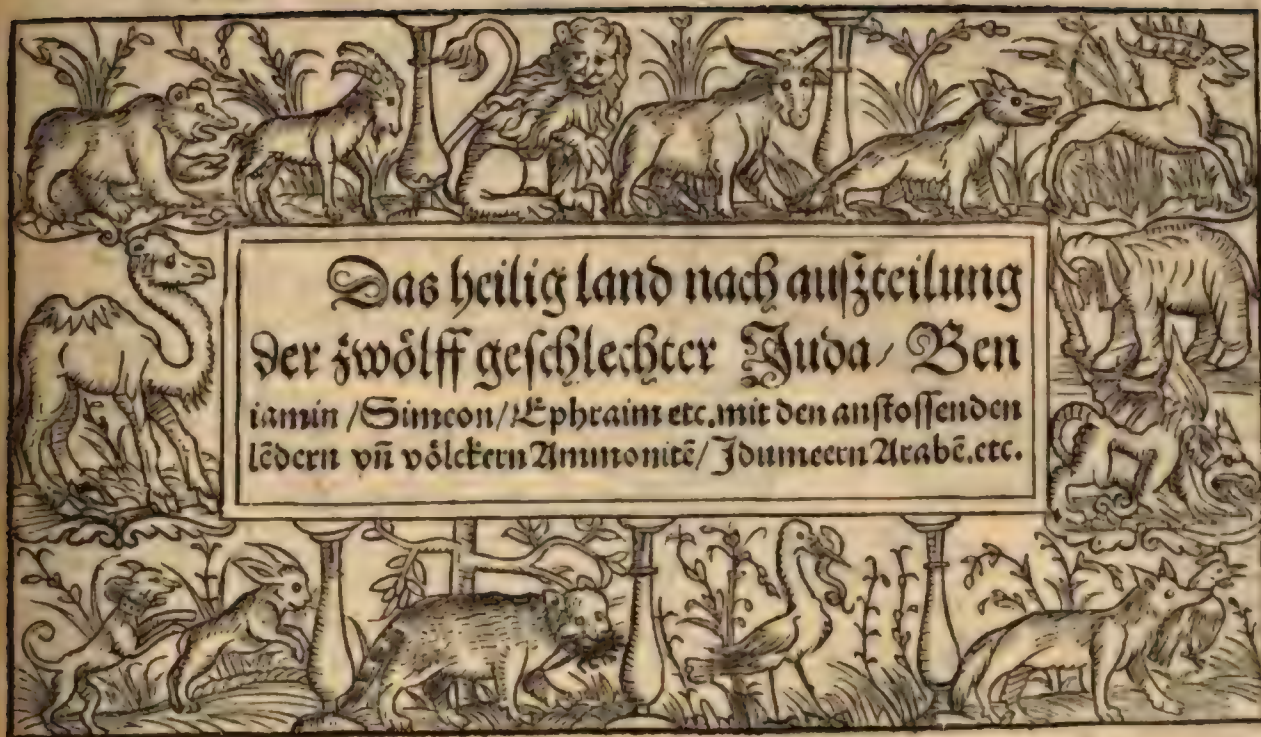 Das heilig land nach auſzteilung
der zwölff geſchlechter Juda/ Ben
iamin /Simeon/Ephraim etc. mit den anſtoſſenden
lēdern vñ völckern Ammonitē/ Jdumeern Arabē. etc.